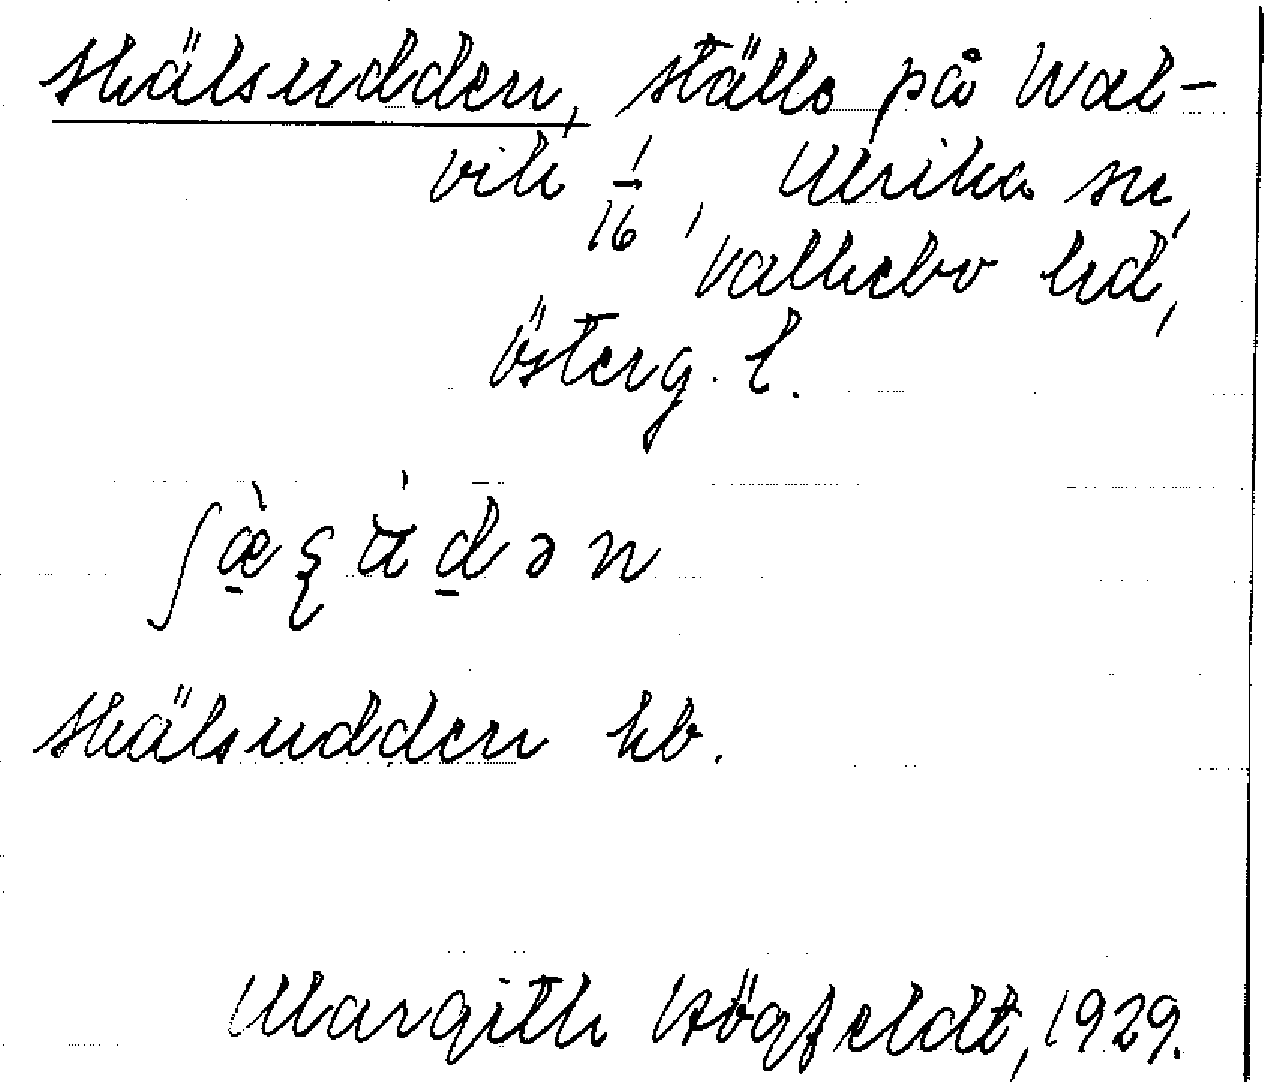 Skälsudden, ställe på Wal-
vik 1/16, Ulrika sn,
Valkebo hd,
Österg. l.
ʃæ̀ʂu̇dən
Skälsudden kb.
Margith Högfeldt, 1929.